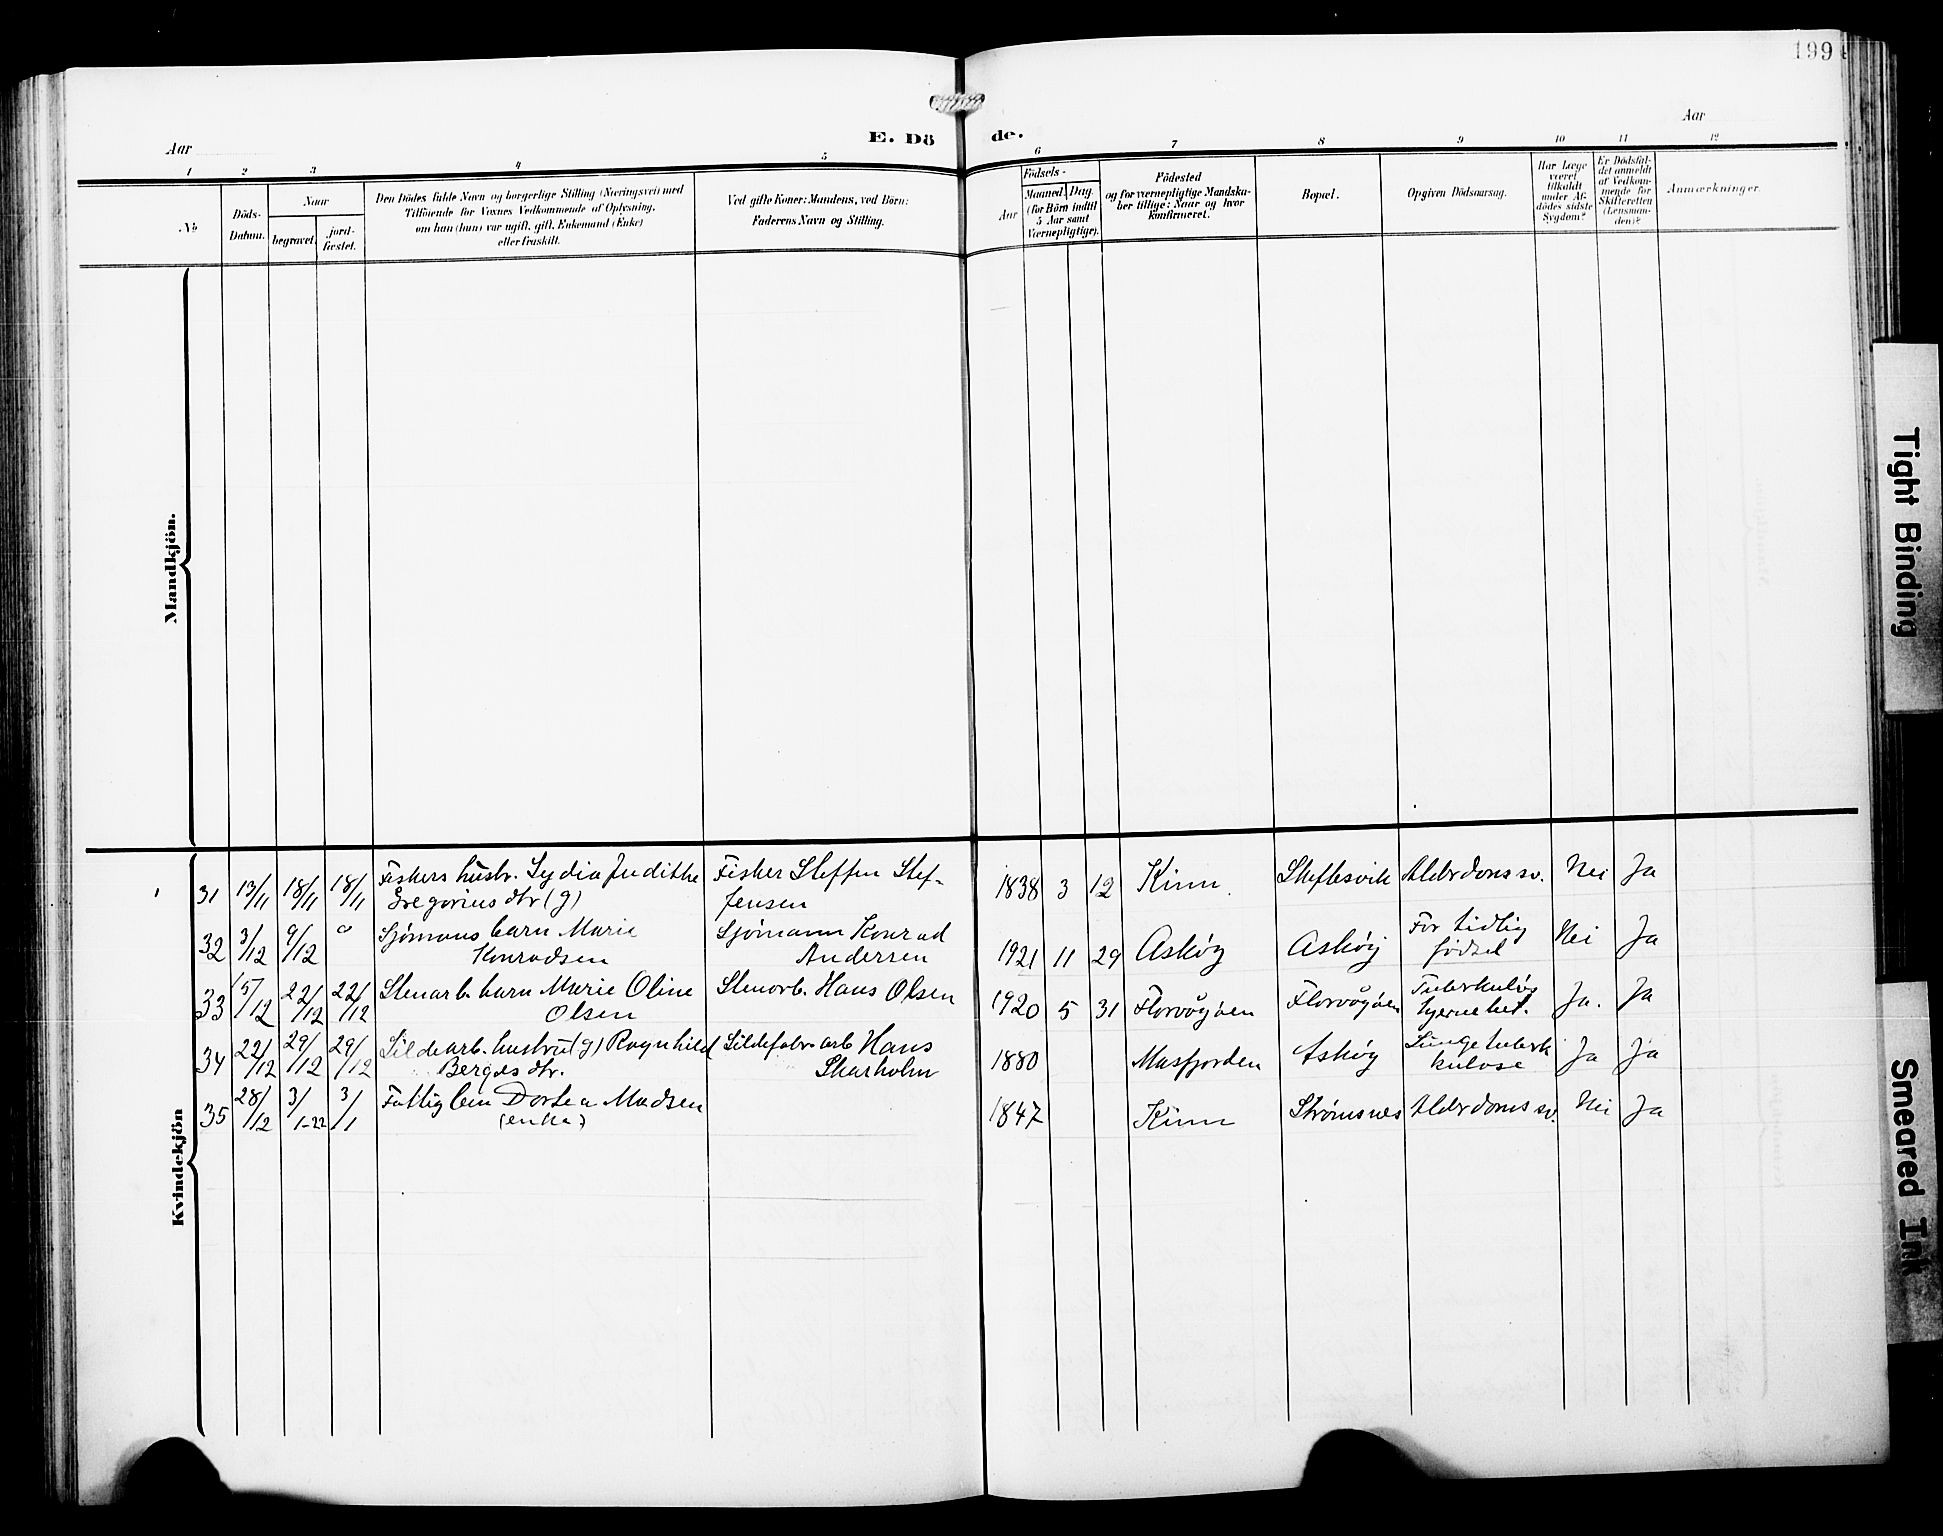 199
Aar
E. Dö
de.
Aar
1 2 3 4 5 6 7 8 9 10 11 12
No
Döds-
Datum.
Naar
begravet.
jord-
fæstet.
Den Dödes fulde Navn og borgerlige Stilling (Næringsvei) med
Tilföiende for Voxnes Vedkommende af Oplysning,
om han (hun) var ugift, gift, Enkemand (Enke)
eller fraskilt.
Ved gifte Koner: Mandens, ved Börn:
Faderens Navn og Stilling.
Födsels-
Aar
Maaned.
Dag.
(for Börn indtil
5 Aar samt
Værnepligtige).
Födested
og for værnepligtige Mandska-
ber tillige: Naar og hvor
konfirmeret.
Bopæl.
Opgiven Dödsaarsag.
Har Læge
været
tilkaldt
under Af-
dödes sidste
Sygdom?
Er Dödsfal-
det anmeldt
af Vedkom-
mende for
Skifteretten
(Lensman-
den)?
Anmærkninger.
Mandkjön.
Kvindekjön
31 13/11 18/11 18/11 Fiskers hustr. Lydia Judithe
Gregorius dtr (g)
Fisker Steffen Stef-
fensen
1838 3 12 Kinn Aldrdoms sv. Nei Ja
32 3/12 9/12 Sjømans barn Marie
Konradsen
Sjømann Konrad
Andersen
1921 11 29 Askøy Askøy For tidlig
fødsel
Nei Ja
33 15/12 22/12 22/12 Stenarb. barn Marie Oline
Olsen
Stenarb. Hans Olsen
1920 5 31 Florvøgøen Florvøgøen Tuberkuløs
hjernebet.
Ja. Ja
34 22/12 29/12 29/12 Sildearb. hustru (g) Ragnhild
Berges dtr.
Sildefabr. arb Hans
Skarholm
1880 Masfjorden Askøy Lungetuberk
kulose
Ja Ja
35 28/12 3/1-22 3/1 Fattiglem Dortea Madsen
(enke)
1847 Kinn Strømsnes Aldrdoms sv. Nei Ja
Tight Binding
Smeared Ink